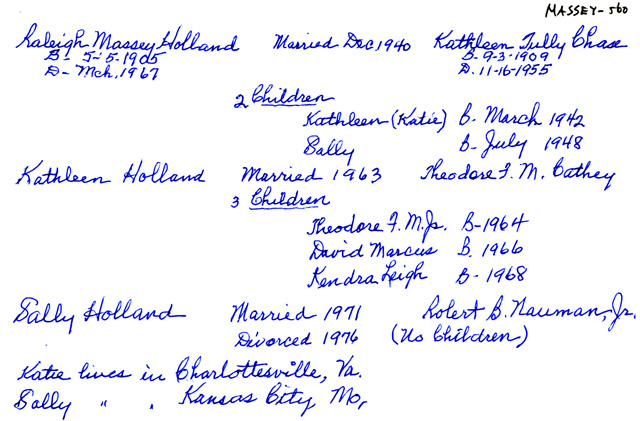 MASSEY-560
Raleigh Massey Holland Married Dec, 1940 Kathleen Tully Chase
B- 5-5-1905 B-9-3-1909
D- Mch, 1967 D. 11-16-1955
2 Children
Kathleen (Katie) B. March 1942
Sally B- July 1948
Kathleen Holland Married 1963 Theodore F. M. Cathey
3 Children
Theodore F. M. Jr. B-1964
David Marcus B. 1966
Kendra Leigh B- 1968
Sally Holland Married 1971 Robert B. Nauman, Jr.
Divorced 1976 (No Children)
Katie lives in Charlottesville, Va.
Sally " " Kansas City, Mo,